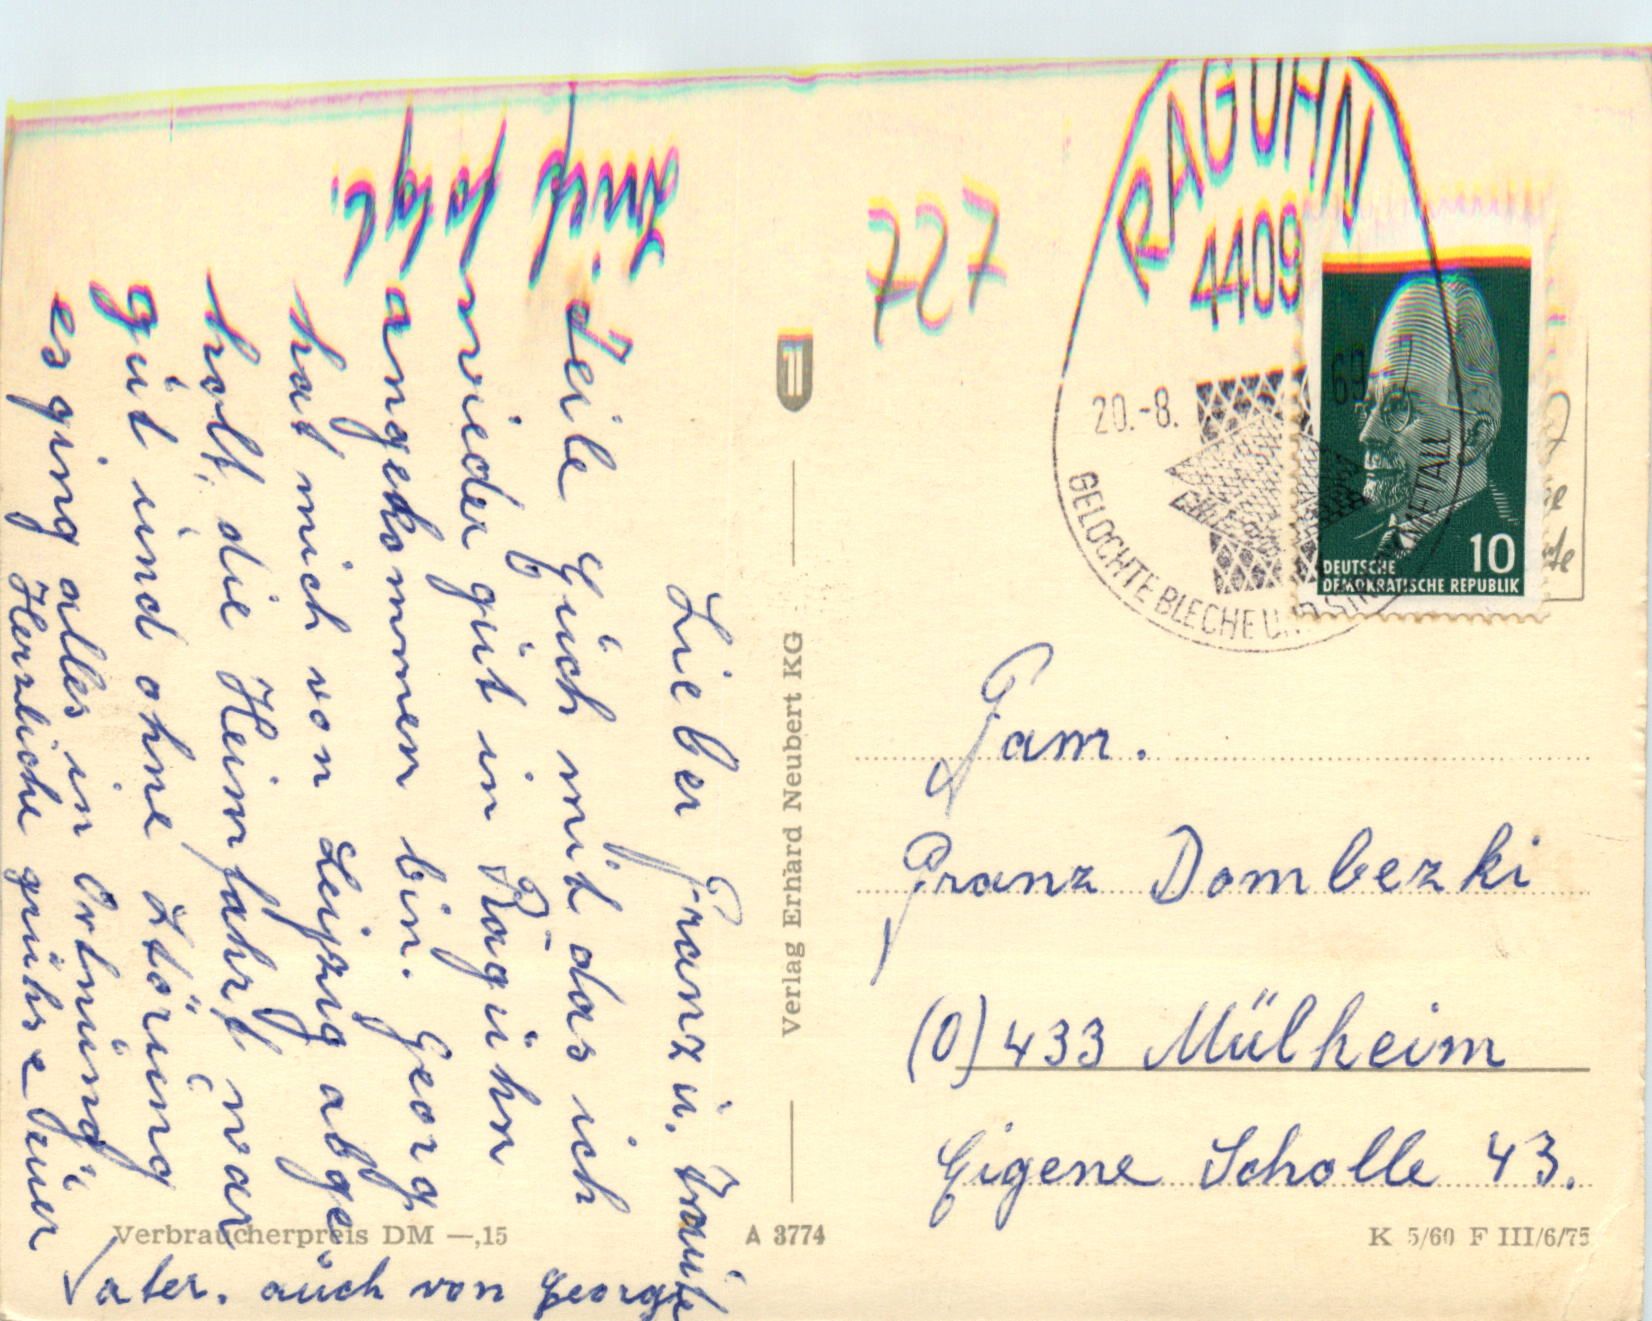 Lieber Franz u. Traute
Teile Euch mit das ich
wieder gut in Raguhn
angekommen bin. Georg
hat mich von Leipzig abge
holt, die Heimfahrt war
gut und ohne Störung
es ging alles in Ortnung
Herzliche grühse Euer
Vater. auch von George
727
RAGUHN
4409
20.-8.69
GELOCHTE BLECHE UND
METALL
10
DEUTSCHE
DEMOKRATISCHE REPUBLIK
Fam.
Franz Dombezki
(0) 433 Mülheim
Eigene Scholle 43.
Verlag Erhard Neubert KG
Verbraucherpreis DM —,15
A 3774
K 5/60 F III/6/75